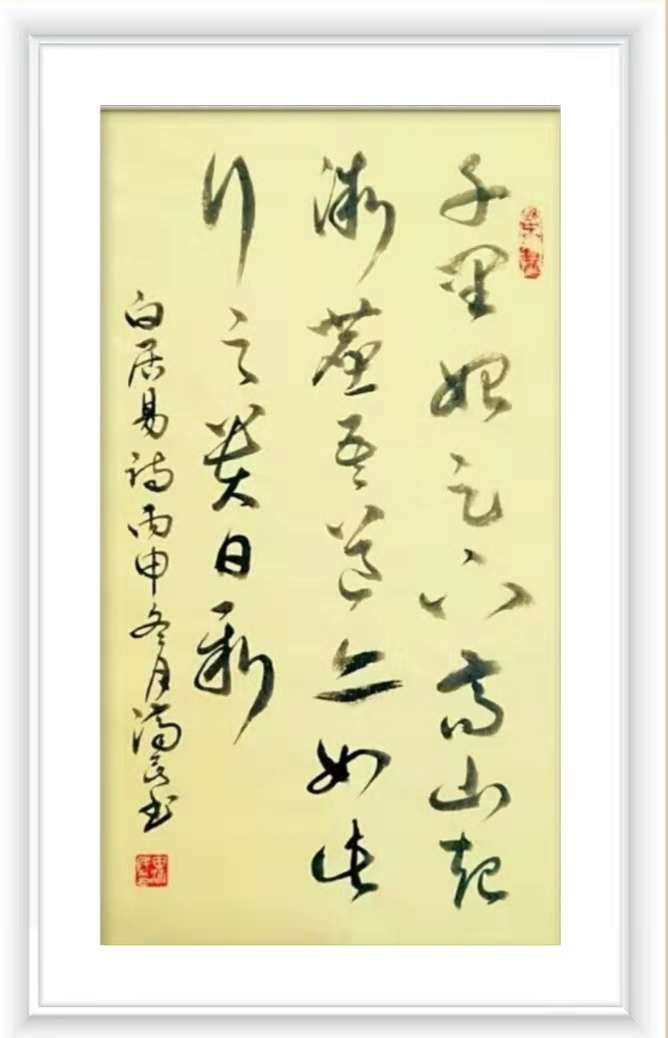 千里始足下高山起
微塵吾道亦如此
行之貴日新
白居易詩丙申冬月书